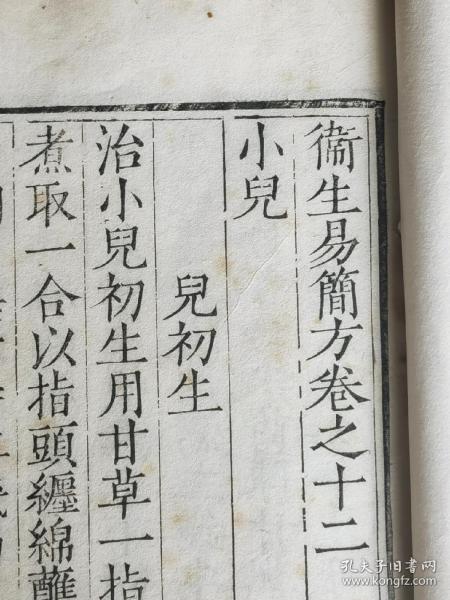 衞生易簡方卷之十二
小兒
兒初生
治小兒初生用甘草一指
煮取一合以指頭纏綿蘸
孔夫子旧书网
www.kongfz.com